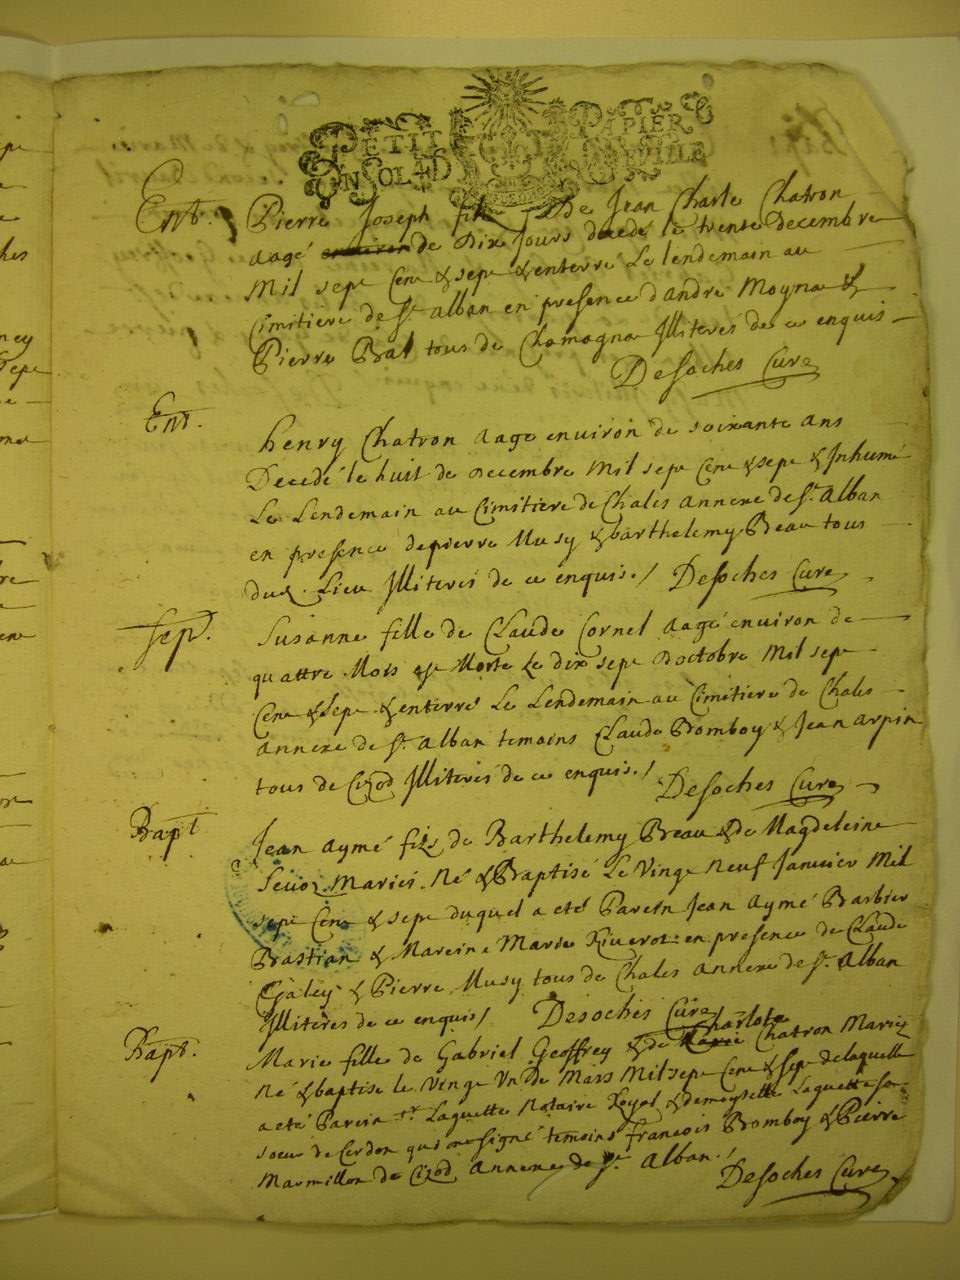 PETIT PAPIER
UN SOL
Ent. Pierre Joseph fils De Jean Charle Chatron
aagé de Dix Jours decedé le trente Decembre
Mil sept Cent & sept & enterré Le lendemain au
Cimitiere de St alban en presence dandré Moyna &
Pierre Brat tous de Chamogna Illiterés de ce enquis
Desoches Cure
Ent.
henry Chatron aagé enuiron de soixante ans
Decedé le huit de Decembre Mil sept Cent & sept & Inhumé
Le Lendemain au Cimitiere de Chales annexe de St. Alban
en presence de pierre Musy & barthelemy Beau tous
dud. Lieu Illiterés de ce enquis./ Desoches Cure
sep.
Susanne fille de Claude Cornel aagé enuiron de
quattre Mois est Morte Le dix sept Doctobre Mil sept
Cent & sept & enterré Le Lendemain au Cimitiere de Chales
annexe de St. alban temoins Claude Bomboy & Jean arpin
tous de Cizod Illiterés de ce enquis./
Desoches Cure
Bapt
Jean aymé fils de Barthelemy Beau & de Magdeleine
Mariés. Né & Baptisé Le Vingt Neuf Januier Mil
sept Cent & sept duquel a eté Parein Jean Aymé Barbier
Bastian & Mareine Marie en presence de Claude
Galey & Pierre Musy tous de Chales annexe de St. alban
Illiterés de ce enquis/ Desoches Cure
Bapt.
Charlote
Marie fille de Gabriel Geoffrey & de Chatron Mariés
Né & baptisé le Vingt Un De Mars Mil sept Cent & sept de laquelle
a eté Parein Sr. Laguette Notaire Royal & demoyselle Laguette sa
soeur de Cerdon qui ont signé temoins francois Bomboy & Pierre
Marmillon de Cizod annexe de St. alban./
Desoches Cure